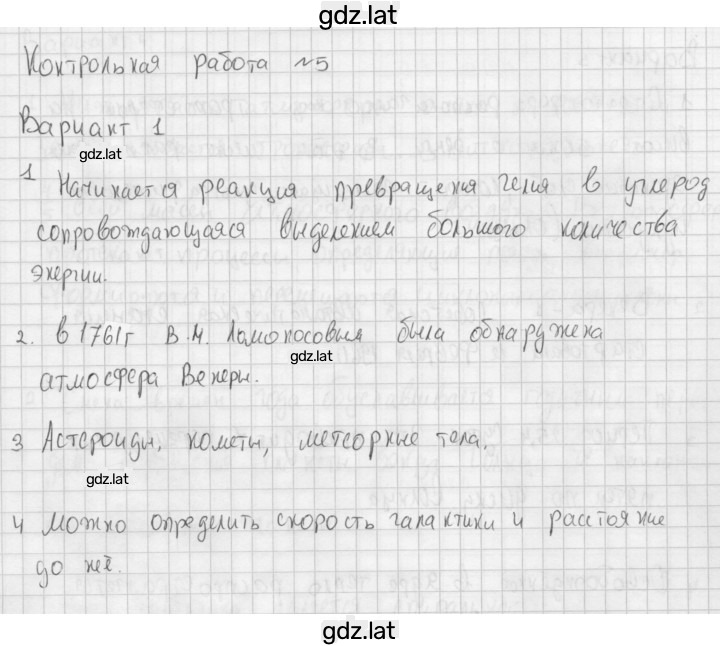 gdz.lat
Контрольная работа №5
Вариант 1
gdz.lat
1 Начинается реакция превращения гелия в углерод
сопровождающаяся выделением большого количества
энергии.
2. в 1761г В.М. Ломоносовым была обнаружена
gdz.lat
атмосфера Венеры.
3 Астероиды, кометы, метеорные тела.
gdz.lat
4 Можно определить скорость галактики и расстояние
до неё.
gdz.lat